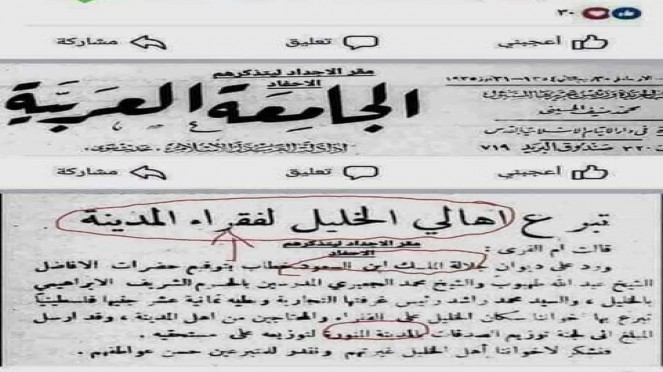 ٣٠
أعجبني تعليق مشاركة
مقر الاجداد ليتذكرهم
الاحفاد
الجامعة العربية
محمد منيف الحسيني
صندوق البريد ٧١٩
أعجبني تعليق مشاركة
تبرع اهالي الخليل لفقراء المدينة
مقر الاجداد ليتذكرهم
الاحفاد
قالت ام القرى :
ورد على ديوان جلالة الملك ابن السعود خطاب بتوقيع حضرات الافاضل
الشيخ عبد الله طهبوب والشيخ محمد الجعبري المدرسين بالحرم الشريف الابراهيمي
بالخليل ، والسيد محمد راشد رئيس غرفتها التجارية وطيه ثمانية عشر جنيها فلسطينيا
تبرع بها اخواننا سكان الخليل على الفقراء والمحتاجين من اهل المدينة ، وقد ارسل
المبلغ الى لجنة توزيع الصدقات بالمدينة المنورة لتوزيعه على مستحقيه .
فنشكر لاخواننا أهل الخليل غيرتهم ونقدر للمتبرعين حسن عواطفهم .